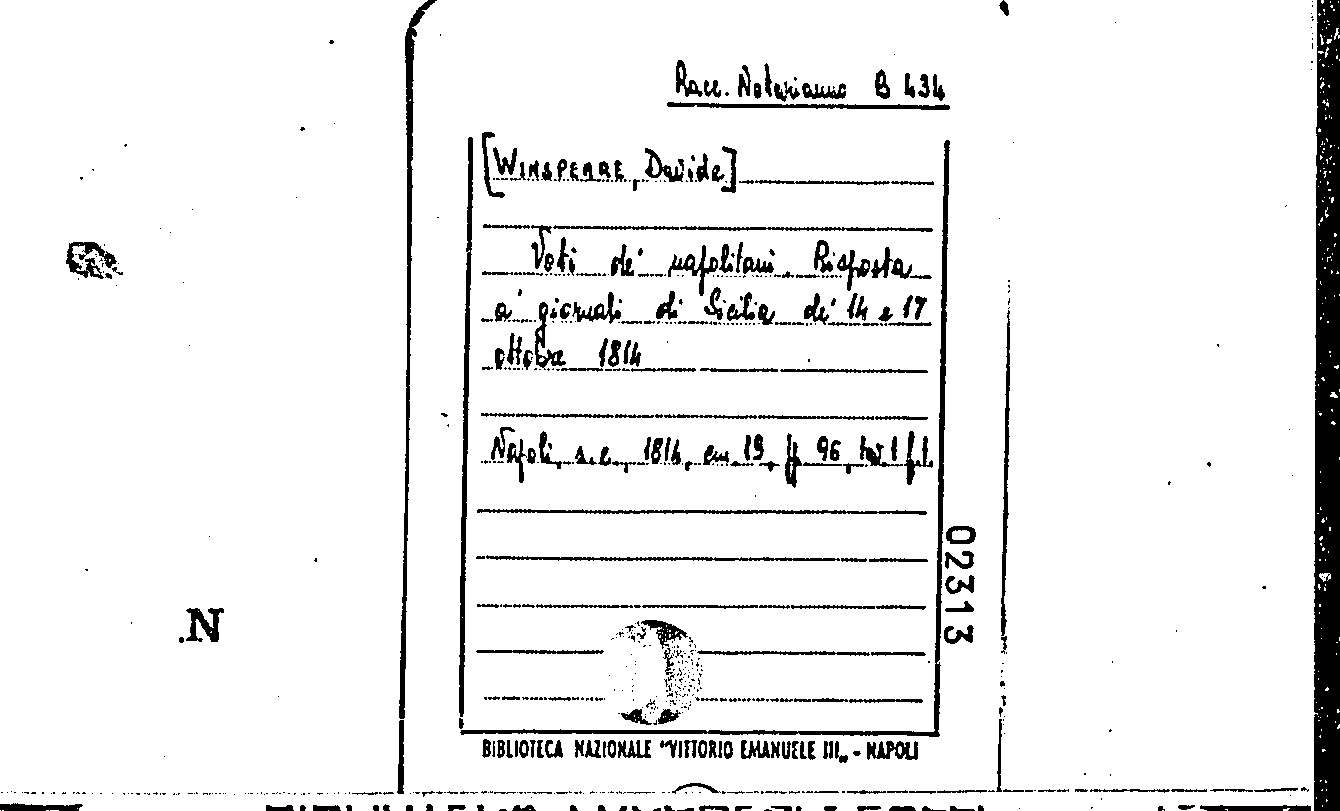 Racc. Notarianno B 434
[WINSPEARE, Davide]
Voti de' napolitani. Risposta
a' giornali di Sicilia de' 14 e 17
ottobre 1814
Napoli, s.e., 1814, cm. 19, ff 96, tav 1 f.t.
02313
N.
BIBLIOTECA NAZIONALE "VITTORIO EMANUELE III„ - NAPOLI